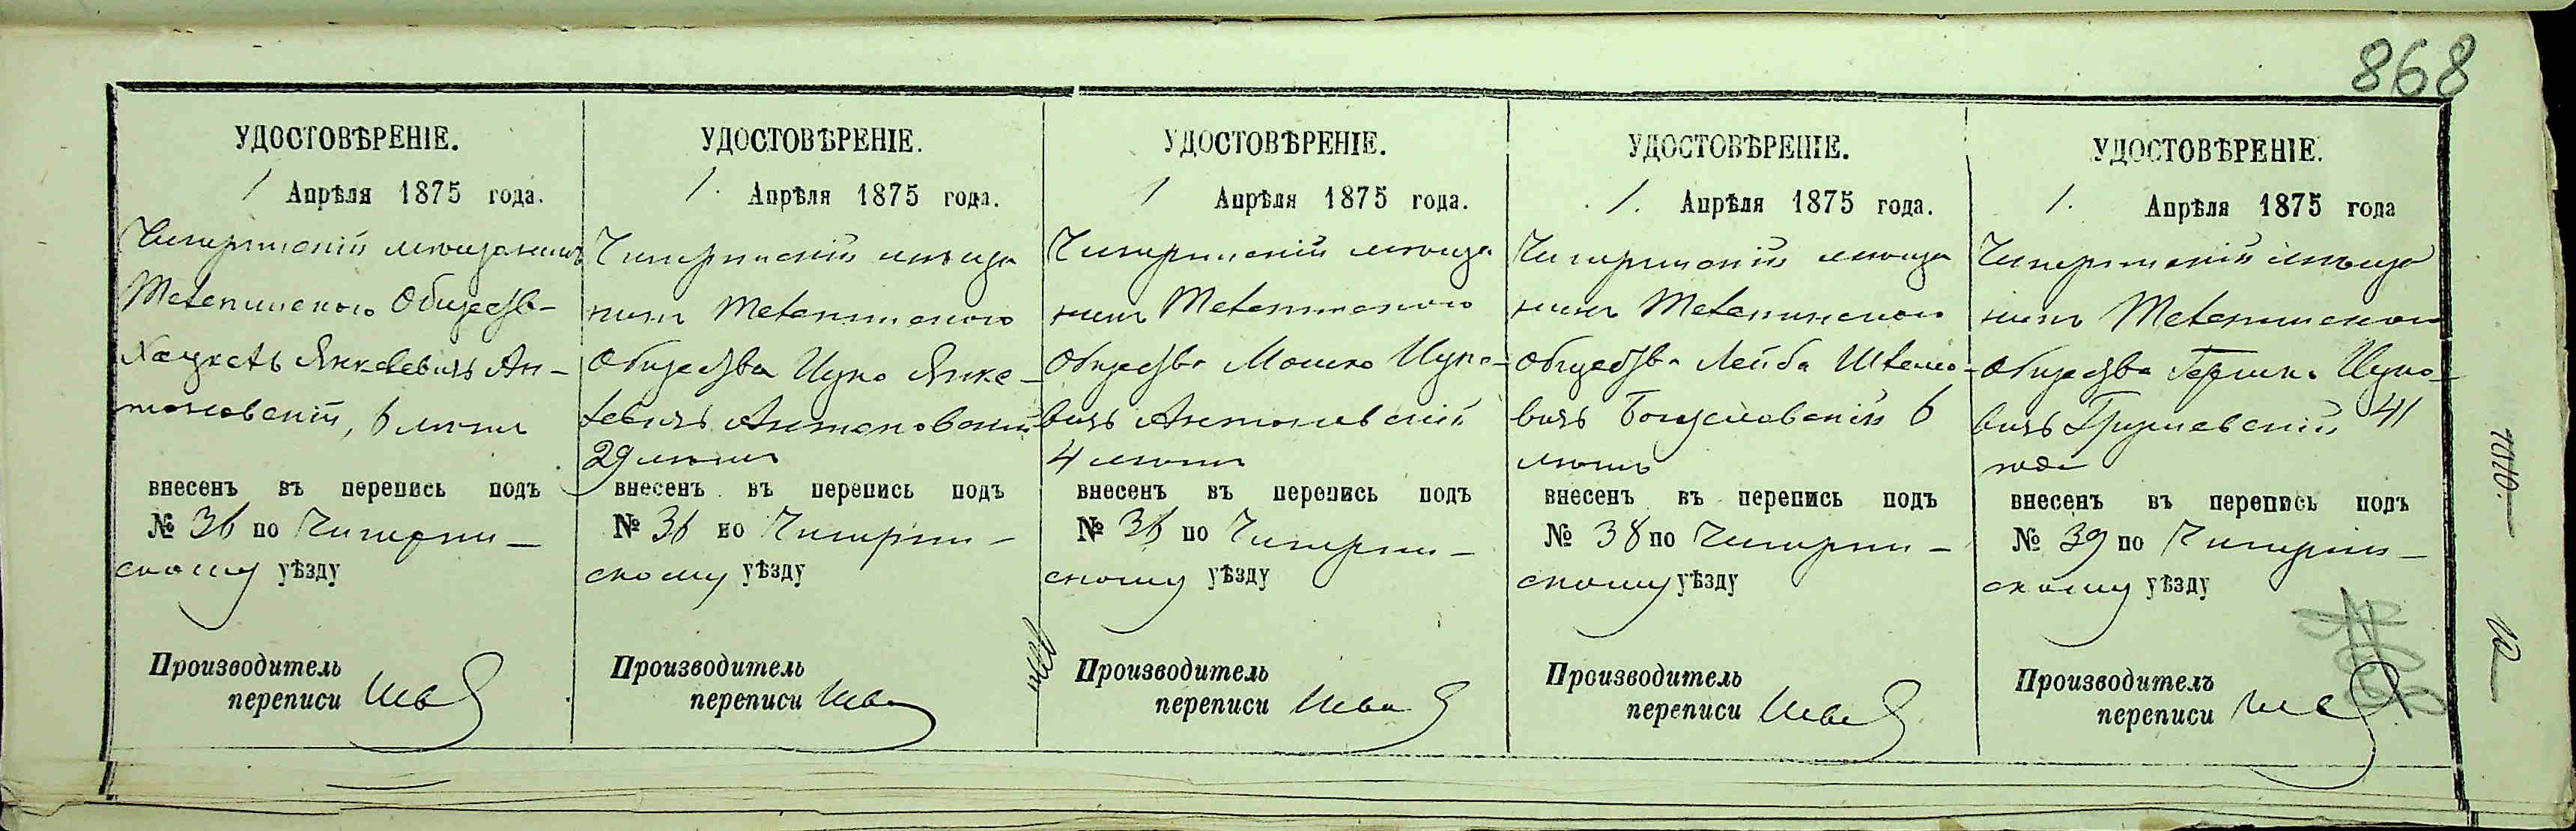 868
УДОСТОВѢРЕНІЕ.
1 Апрѣля 1875 года.
Чигиринскій мѣщанинъ
Метелинского Обществ-
Хацкель Янкелевичъ Ан-
тоновскій, 6 лѣтъ
внесенъ въ перепись подъ
№ 36 по Чигирин-
скому уѣзду
Производитель
переписи
УДОСТОВѢРЕНІЕ.
1. Апрѣля 1875 года.
Чигиринскій мѣща
нинъ
Общества Ицко Янке-
левичъ Антоновскій
29 лѣтъ
внесенъ въ перепись подъ
№ 36 по Чигирин-
скому уѣзду
Производитель
переписи
УДОСТОВѢРЕНІЕ.
1 Апрѣля 1875 года.
Чигиринскій мѣща
нинъ
Общества Мошко Ицко-
вичъ Антоновскій
4 лѣтъ
внесенъ въ перепись подъ
№ 36 по Чигирин-
скому уѣзду
Производитель
переписи
УДОСТОВѢРЕНІЕ.
1. Апрѣля 1875 года.
Чигиринскій мѣща
нинъ
Общества Лейба Шлемо-
вичъ Богуславскій 6
лѣтъ
внесенъ въ перепись подъ
№ 38 по Чигирин-
скому уѣзду
Производитель
переписи
УДОСТОВѢРЕНІЕ.
1. Апрѣля 1875 года
Чигиринскій мѣща
нинъ
Общества Гершко Ицко-
вичъ 41
года
внесенъ въ перепись подъ
№ 39 по Чигирин-
скому уѣзду
Производитель
переписи